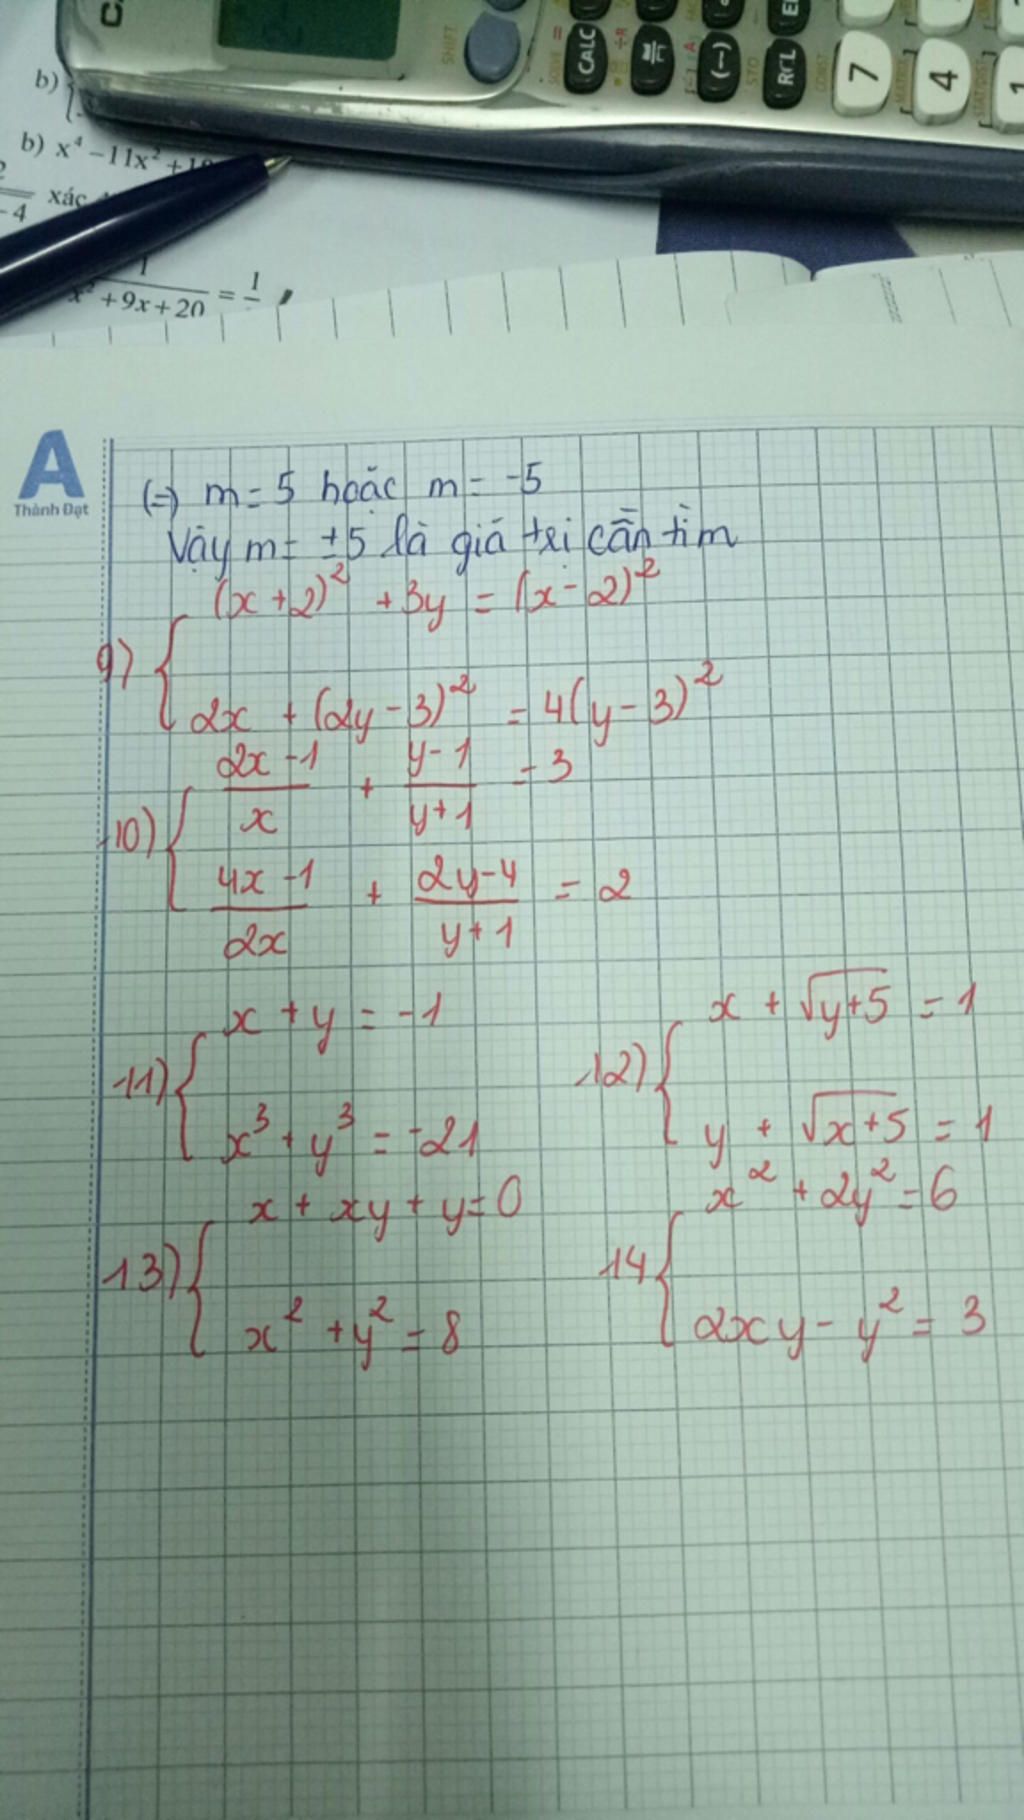 b)
b) x⁴ - 11x² +
- 4 xác
1
x² + 9x + 20 = 1
SHIFT
SOLVE =
CALC
(−)
STO
RCL
CONST
7
4
1
A
Thành Đạt
(=) m = 5 hoặc m = -5
Vậy m = ±5 là giá trị cần tìm
9) { (x+2)² + 3y = (x-2)²
2x + (2y-3)² = 4(y-3)²
10) { (2x-1)/x + (y-1)/(y+1) = 3
(4x-1)/(2x) + (2y-4)/(y+1) = 2
11) { x + y = -1
x³ + y³ = -21
12) { x + √(y+5) = 1
y + √(x+5) = 1
13) { x + xy + y = 0
x² + y² = 8
14 { x² + 2y² = 6
2xy - y² = 3